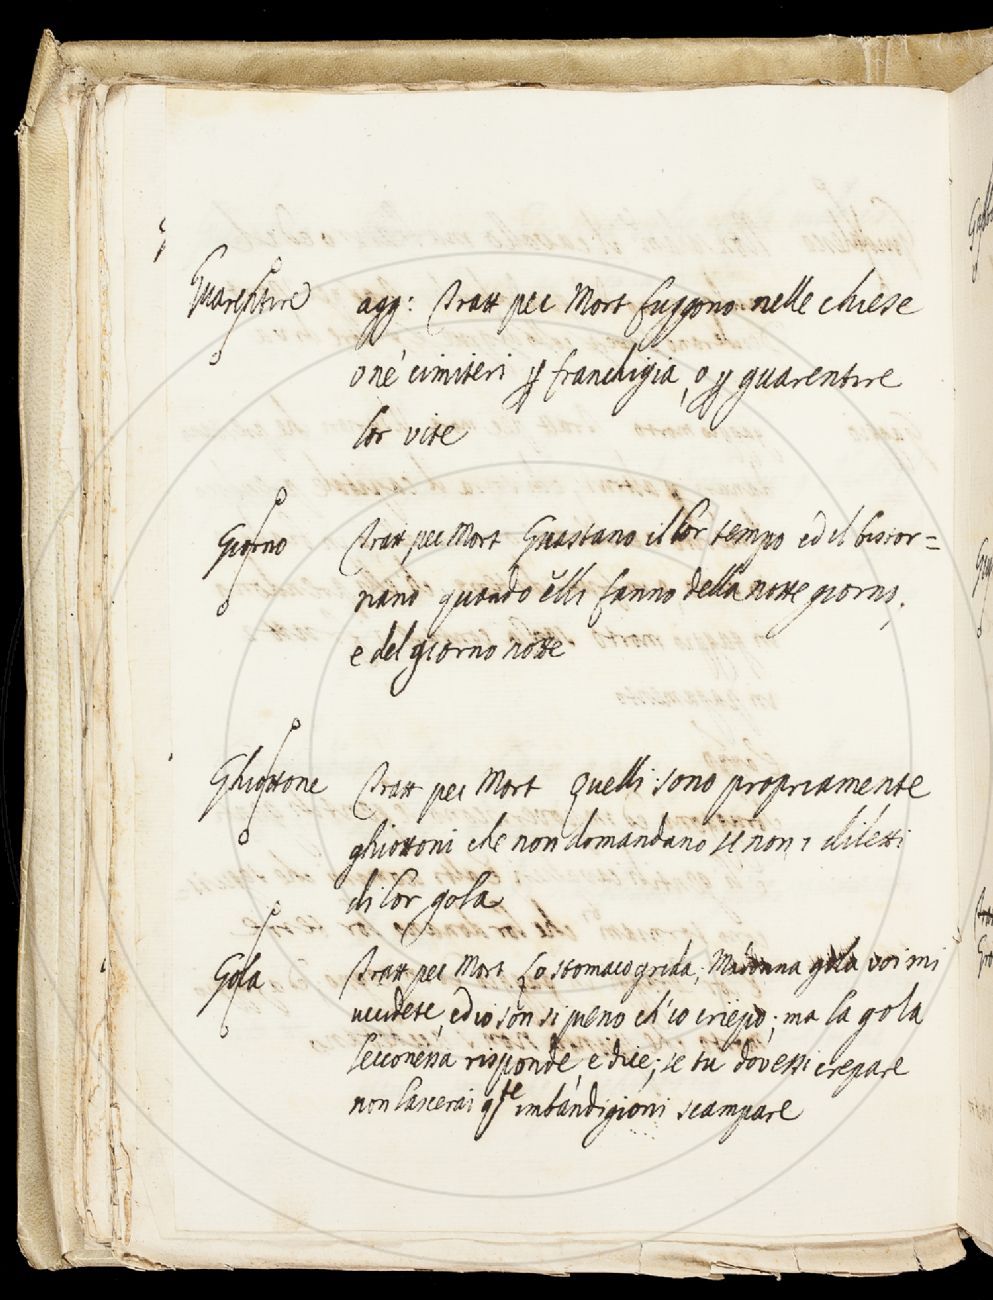 Guarentire agg: Tratt pec Mort fuggono nelle chiese
o ne' cimiteri p franchigia, o p guarentire
lor vite
Giorno Tratt pec Mort Guastano il lor tempo ed il bistor=
nano quando elli fanno della notte giorno,
e del giorno notte
Ghiottone Tratt pec Mort Quelli sono propriamente
ghiottoni che non domandano se non i diletti
di lor gola
Gola Tratt pec Mort Lo stomaco grida, Madonna gola voi mi
uccidete, ed io son si pieno ch'io criepo; ma la gola
lecconessa risponde, e dice; se tu dovessi crepare
non lascerai qste imbandigioni scampare